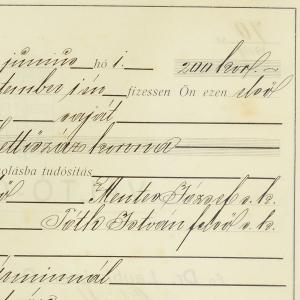 június hó 1. 200 kor.
tember 1 én fizessen Ön ezen első
saját
ettőszáz korona
olásba tudósítás
Mentes József s. k.
Tóth István felső s. k.